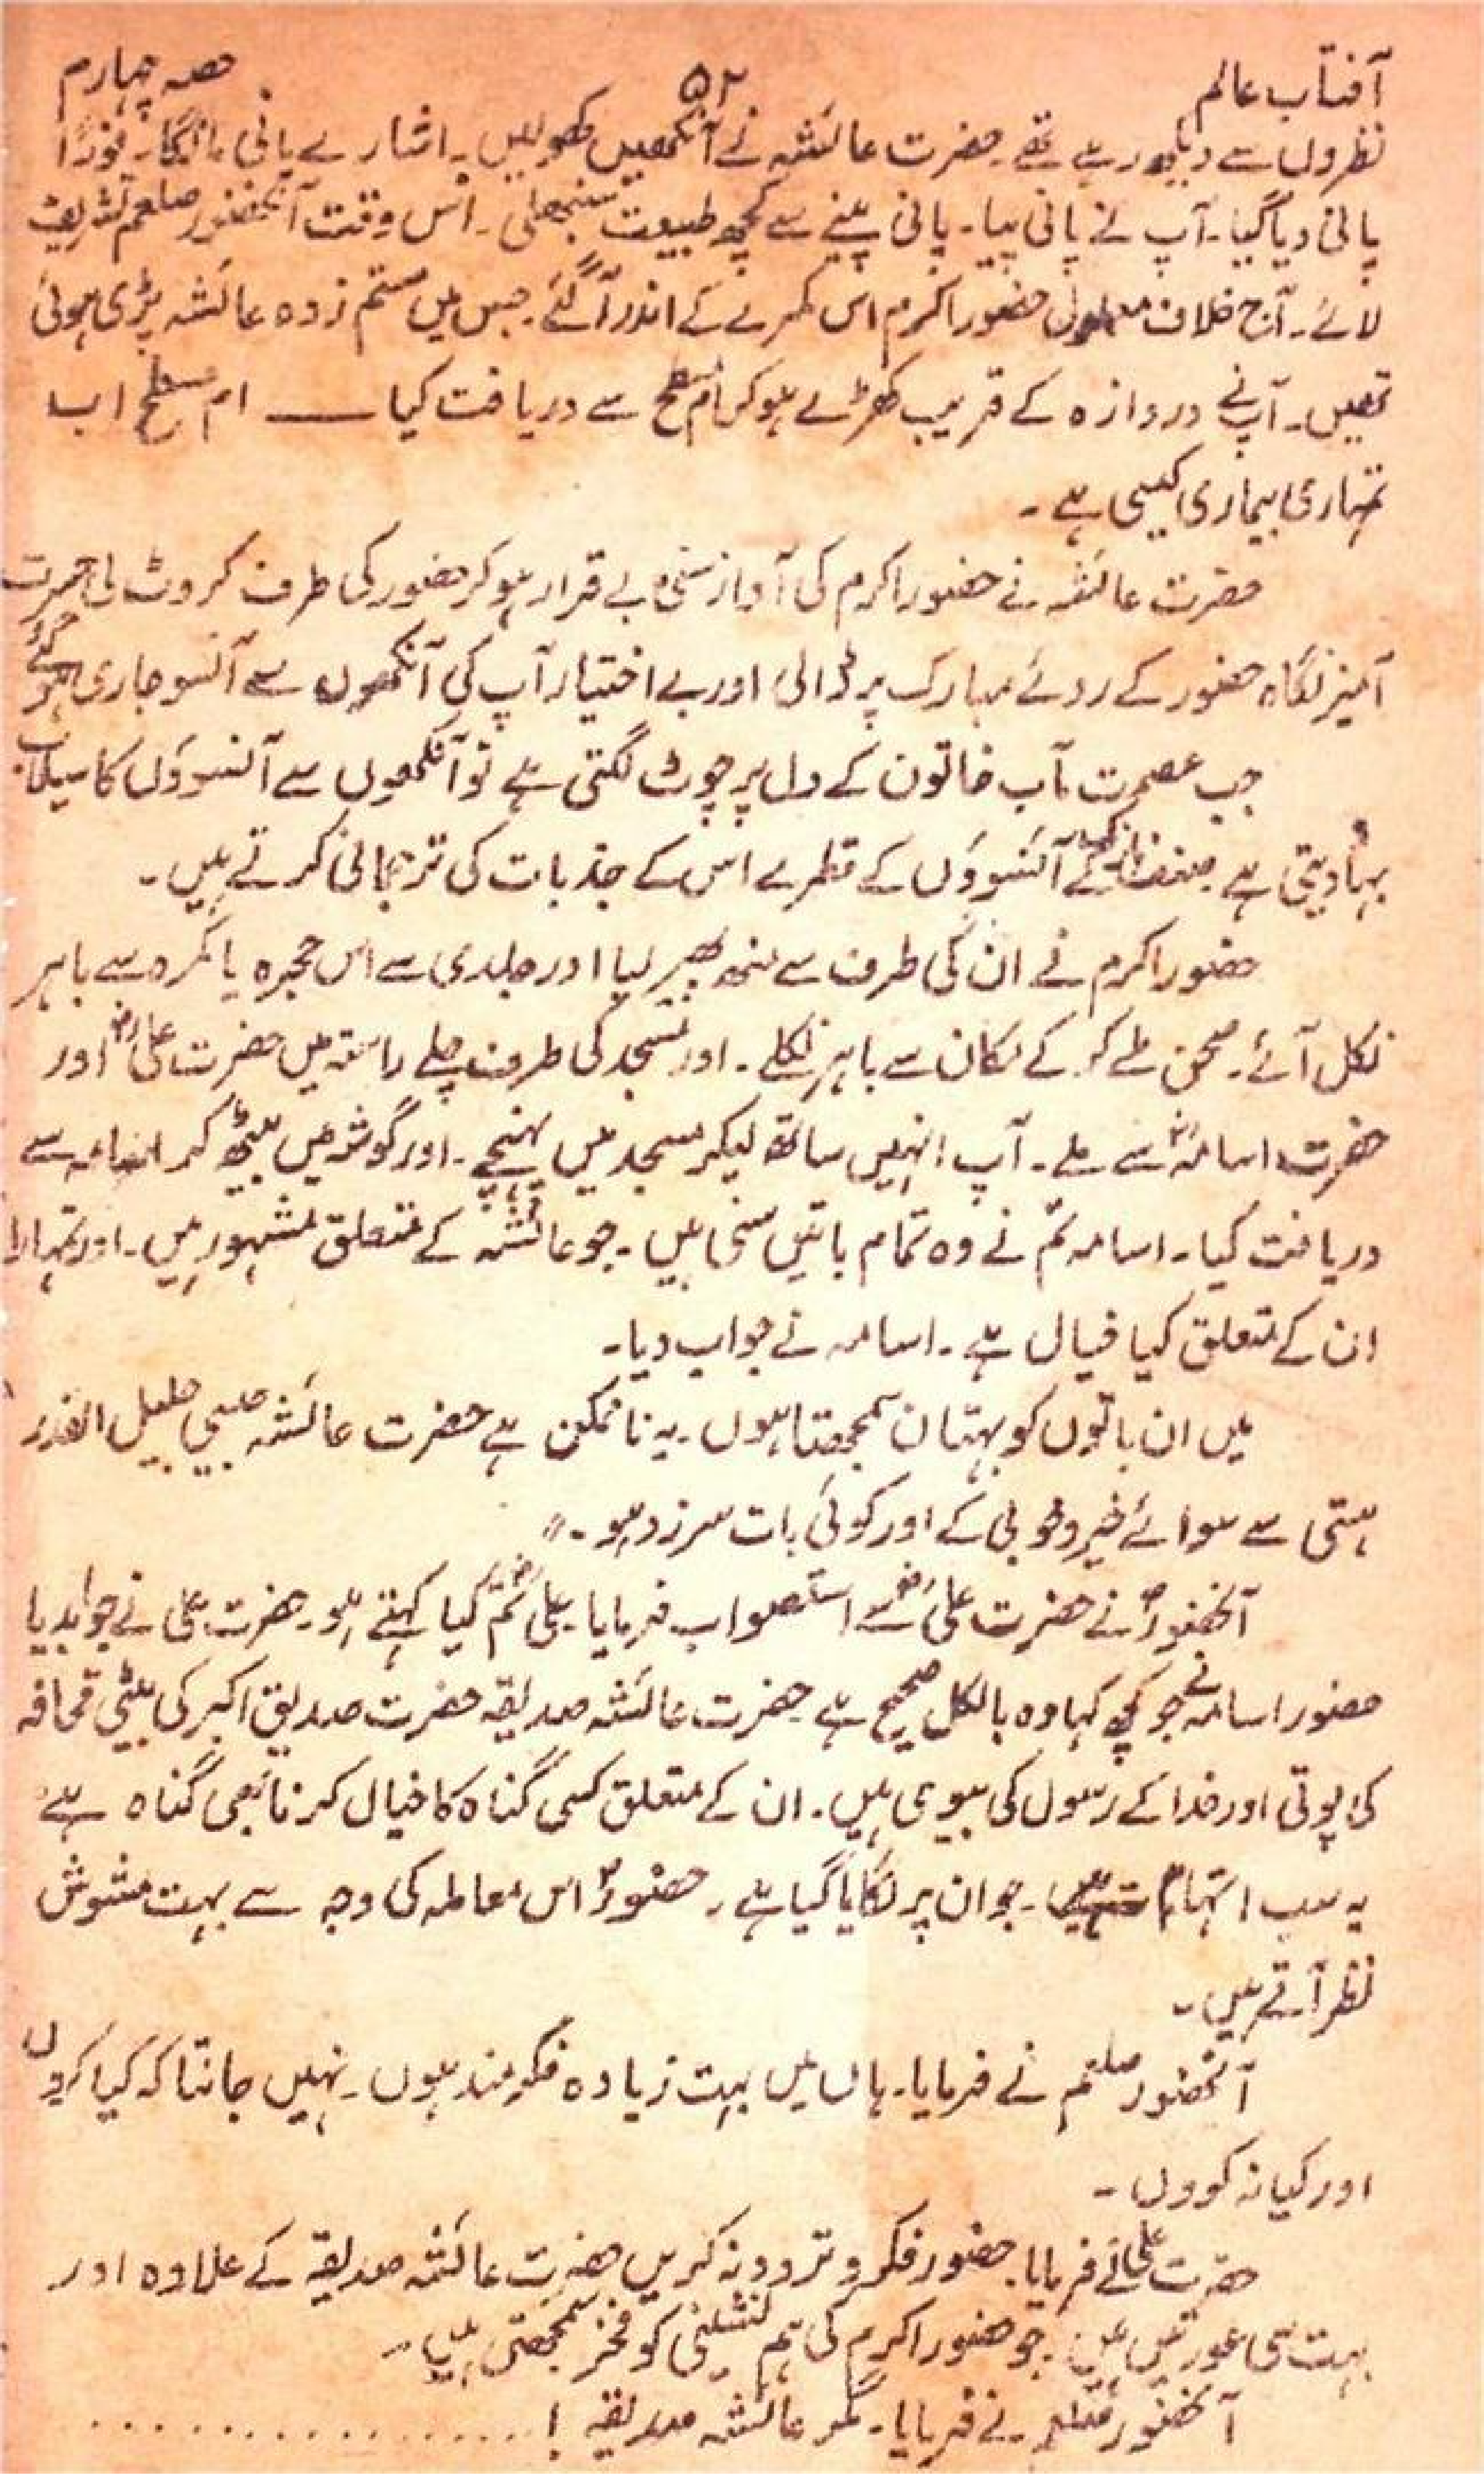 آفتاب عالم ۵۲ حصہ چہارم
نظروں سے دیکھ رہے تھے۔ حضرت عائشہ نے آنکھیں کھولیں۔ اشارے پانی مانگا۔ فوراً
پانی دیا گیا۔ آپ نے پانی پیا۔ پانی پینے سے کچھ طبیعت سنبھلی۔ اُس وقت آنحضور صلعم تشریف
لائے۔ آج خلاف معمول حضور اکرم اس کمرے کے اندر آگئے۔ جس میں ستم زدہ عائشہ پڑی ہوئی
تھیں۔ آپ نے دروازہ کے قریب کھڑے ہوکر ام مسطح سے دریافت کیا ــــــ ام مسطح اب
تمہاری بیماری کیسی ہے۔
حضرت عائشہ نے حضور اکرم کی آواز سنی بے قرار ہوکر حضور کی طرف کروٹ لی
آمیز نگاہ حضور کے روئے مبارک پر ڈالی اور بے اختیار آپ کی آنکھوں سے آنسو جاری ہوگئے
جب عصمت مآب خاتون کے دل پر چوٹ لگتی ہے تو آنکھوں سے آنسوؤں کا سیلاب
بہا دیتی ہے۔ صنف نازک کے آنسوؤں کے قطرے اس کے جذبات کی ترجمانی کرتے ہیں۔
حضور اکرم نے ان کی طرف سے منھ پھیر لیا اور جلدی سے اس حجرہ یا کمرہ سے باہر
نکل آئے۔ صحن طے کر کے مکان سے باہر نکلے۔ اور مسجد کی طرف چلے راستہ میں حضرت علیؓ اور
حضرت اسامہؓ سے ملے۔ آپ انہیں ساتھ لیکر مسجد میں پہنچے۔ اور گوشہ میں بیٹھ کر اسامہ سے
دریافت کیا۔ اسامہ تم نے وہ تمام باتیں سنی ہیں۔ جو عائشہ کے متعلق مشہور ہیں۔ اور تمہارا
ان کے متعلق کیا خیال ہے۔ اسامہ نے جواب دیا۔
میں ان باتوں کو بہتان سمجھتا ہوں۔ یہ ناممکن ہے حضرت عائشہ جیسی جلیل القدر
ہستی سے سوائے خیر و خوبی کے اور کوئی بات سرزد ہو۔"
آنحضورؐ نے حضرت علیؓ سے استصواب فرمایا۔ علیؓ تم کیا کہتے ہو۔ حضرت علی نے جواب دیا
حضور اسامہ نے جو کچھ کہا وہ بالکل صحیح ہے۔ حضرت عائشہ صدیقہ حضرت صدیق اکبر کی بیٹی قحافہ
کی پوتی اور خدا کے رسول کی بیوی ہیں۔ ان کے متعلق کسی گناہ کا خیال کرنا بھی گناہ ہے
یہ سب اتہام ہے۔ جو ان پر لگایا گیا ہے۔ حضورؐ اس معاملہ کی وجہ سے بہت مشوش
نظر آتے ہیں۔
آنحضور صلعم نے فرمایا۔ ہاں میں بہت زیادہ فکر مند ہوں۔ نہیں جانتا کہ کیا کروں
اور کیا نہ کروں۔
حضرت علی نے فرمایا۔ حضور فکر و تردد نہ کریں حضرت عائشہ صدیقہ کے علاوہ اور
بہت سی عورتیں ہیں۔ جو حضور اکرم کی ہم نشینی کو فخر سمجھتی ہیں۔
آنحضور صلعم نے فرمایا۔ مگر عائشہ صدیقہ !................